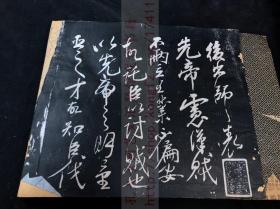 後出師之表
先帝慮漢賊
不兩立王業不偏安
故託臣以討賊也
以先帝之明量
臣之才故知臣伐